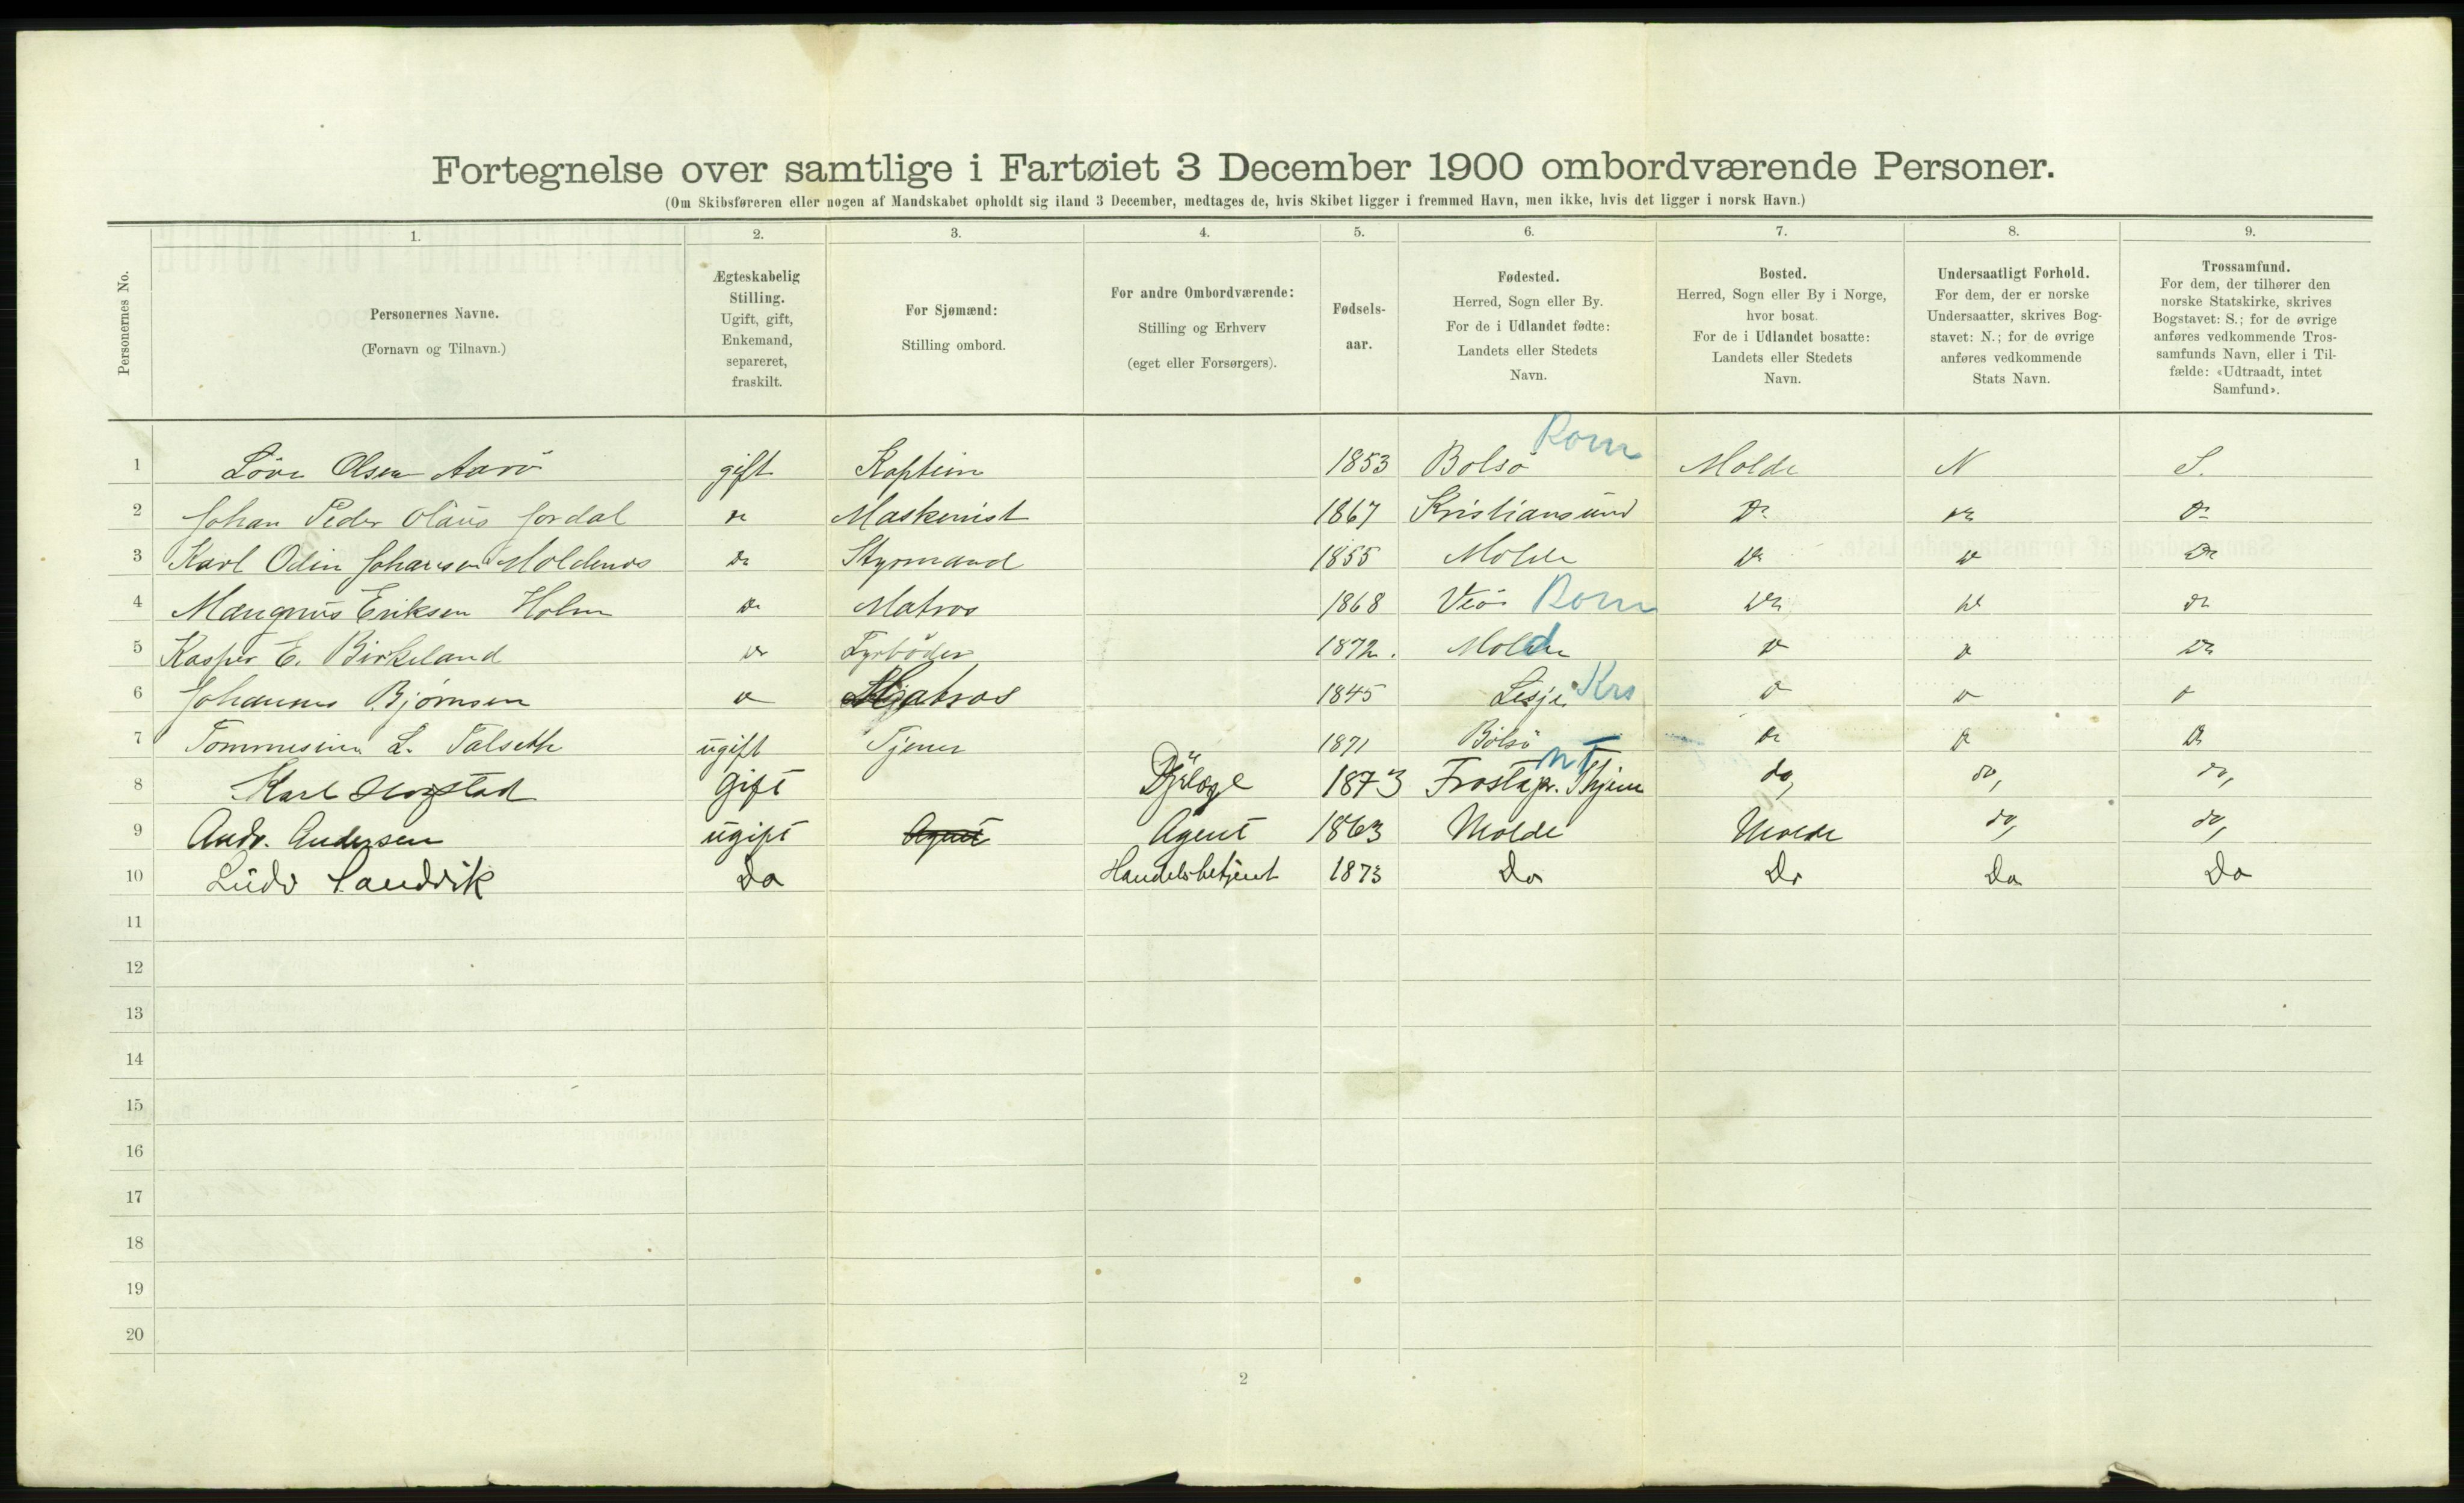 Fortegnelse over samtlige i Fartøiet 3 December 1900 ombordværende Personer.
(Om Skibsføreren eller nogen af Mandskabet opholdt sig iland 3 December, medtages de, hvis Skibet ligger i fremmed Havn, men ikke, hvis det ligger i norsk Havn.)
Personernes No.
1. 2. 3. 4. 5. 6. 7. 8. 9.
Personernes Navne.
(Fornavn og Tilnavn.)
Ægteskabelig
Stilling.
Ugift, gift,
Enkemand,
separeret,
fraskilt.
For Sjømænd:
Stilling ombord.
For andre Ombordværende:
Stilling og Erhverv
(eget eller Forsørgers).
Fødsels-
aar.
Fødested.
Herred, Sogn eller By.
For de i Udlandet fødte:
Landets eller Stedets
Navn.
Bosted.
Herred, Sogn eller By i Norge,
hvor bosat.
For de i Udlandet bosatte:
Landets eller Stedets
Navn.
Undersaatligt Forhold.
For dem, der er norske
Undersaatter, skrives Bog-
stavet: N.; for de øvrige
anføres vedkommende
Stats Navn.
Trossamfund.
For dem, der tilhører den
norske Statskirke, skrives
Bogstavet: S.; for de øvrige
anføres vedkommende Tros-
samfunds Navn, eller i Til-
fælde: «Udtraadt, intet
Samfund».
1 Olsen Aarö gift Kaptein 1853 Bolsö Rom Molde N S.
2 Johan Peder Olaus Jordal do Maskenist 1867 Kristiansund Do do do
3 Karl Odin Johansen Moldenes do Styrmand 1855 Molde do do Do
4 Mangnus Eriksen Holm do Matros 1868 Veö Rom do do do
5 Kasper E. Birkeland do Fyrböder 1872. Molde do do do
6 Johannes Bjørnsen do Matros 1845 Lesje Krs do do do
7 L. Talseth ugift Tjener 1871 Bolsö do do do
8 Karl gift 1873 NT do, do, do,
9 Andr. Andersen ugift Agent Agent 1863 Molde Molde do, do,
10 Ludv Sandvik Do Handelsbetjent 1873 Do Do Do Do
11
12
13
14
15
16
17
18
19
20
2